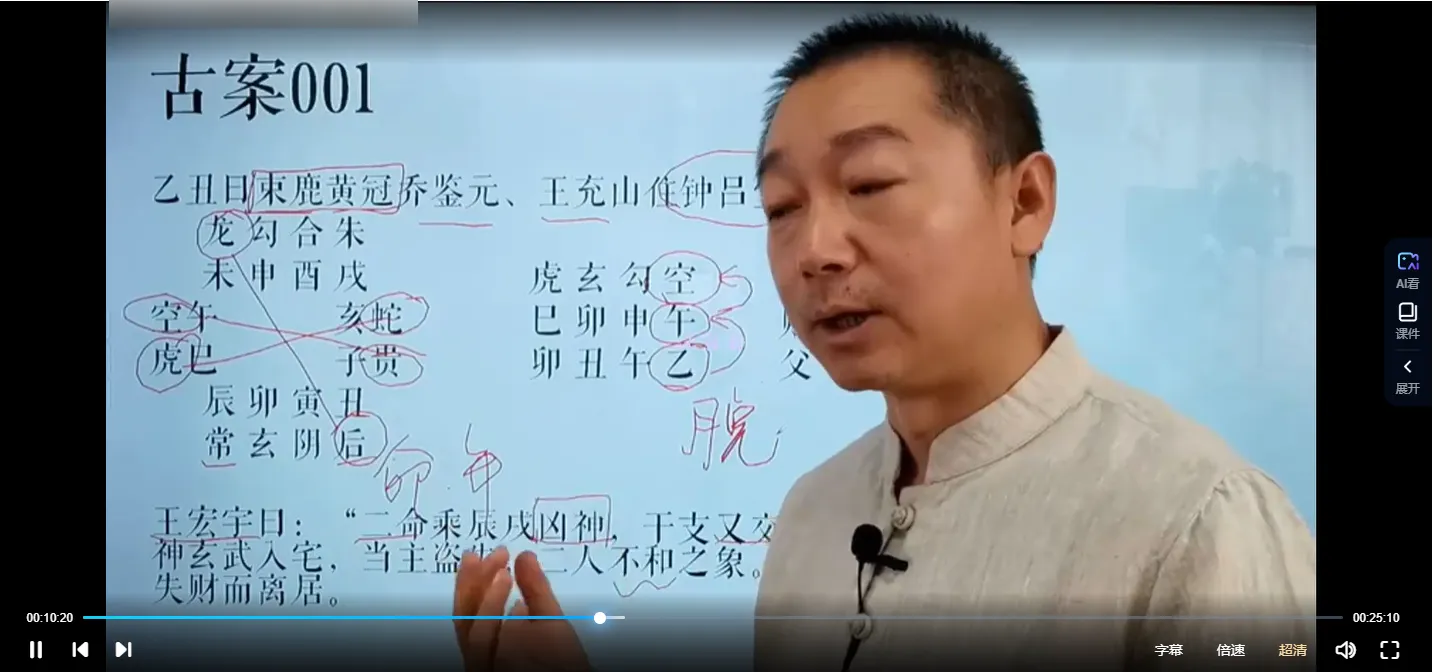 古案001
乙丑日束鹿黄冠乔鉴元、王充山住钟吕
龙勾合朱
未申酉戌
虎玄勾空
空午 亥蛇
巳卯申午
虎巳 子贵
卯丑午乙
父
辰卯寅丑
常玄阴后
脱
卯午
王宏宇曰：“二命乘辰戌凶神，干支又交
神玄武入宅，当主盗 二人不和之象。
失财而离居。
AI看
课件
展开
00:10:20
00:25:10
字幕 倍速 超清